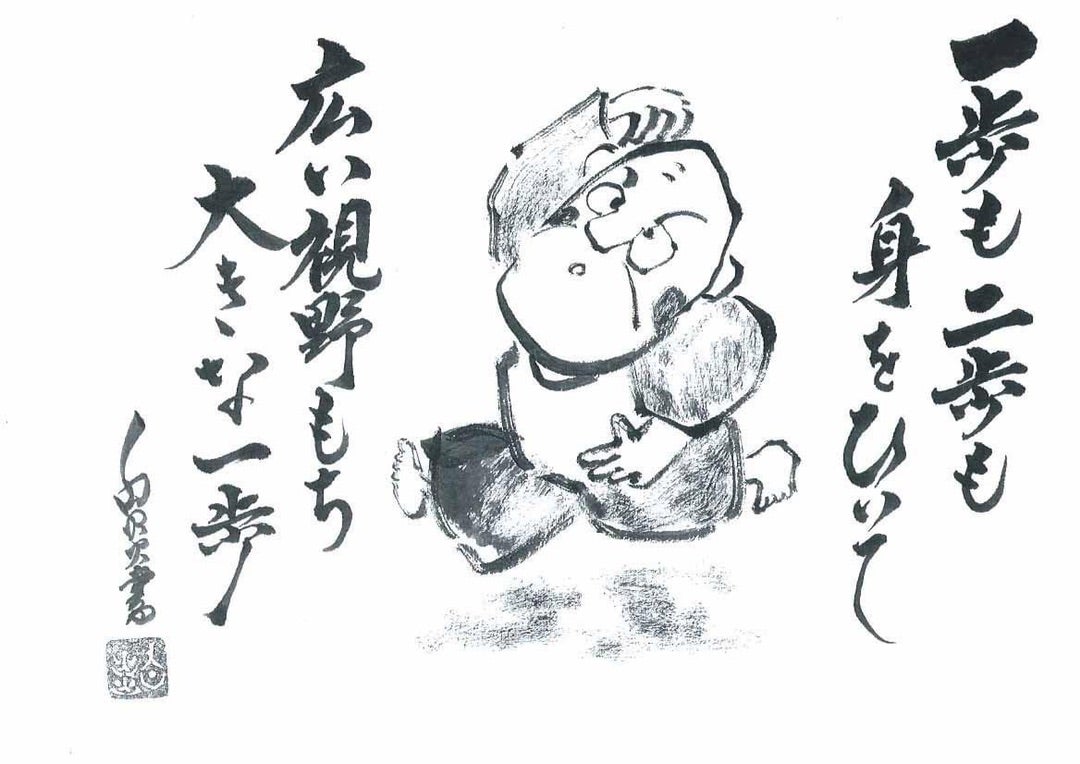 一歩も二歩も
身をひいて
広い視野もち
大きな一歩